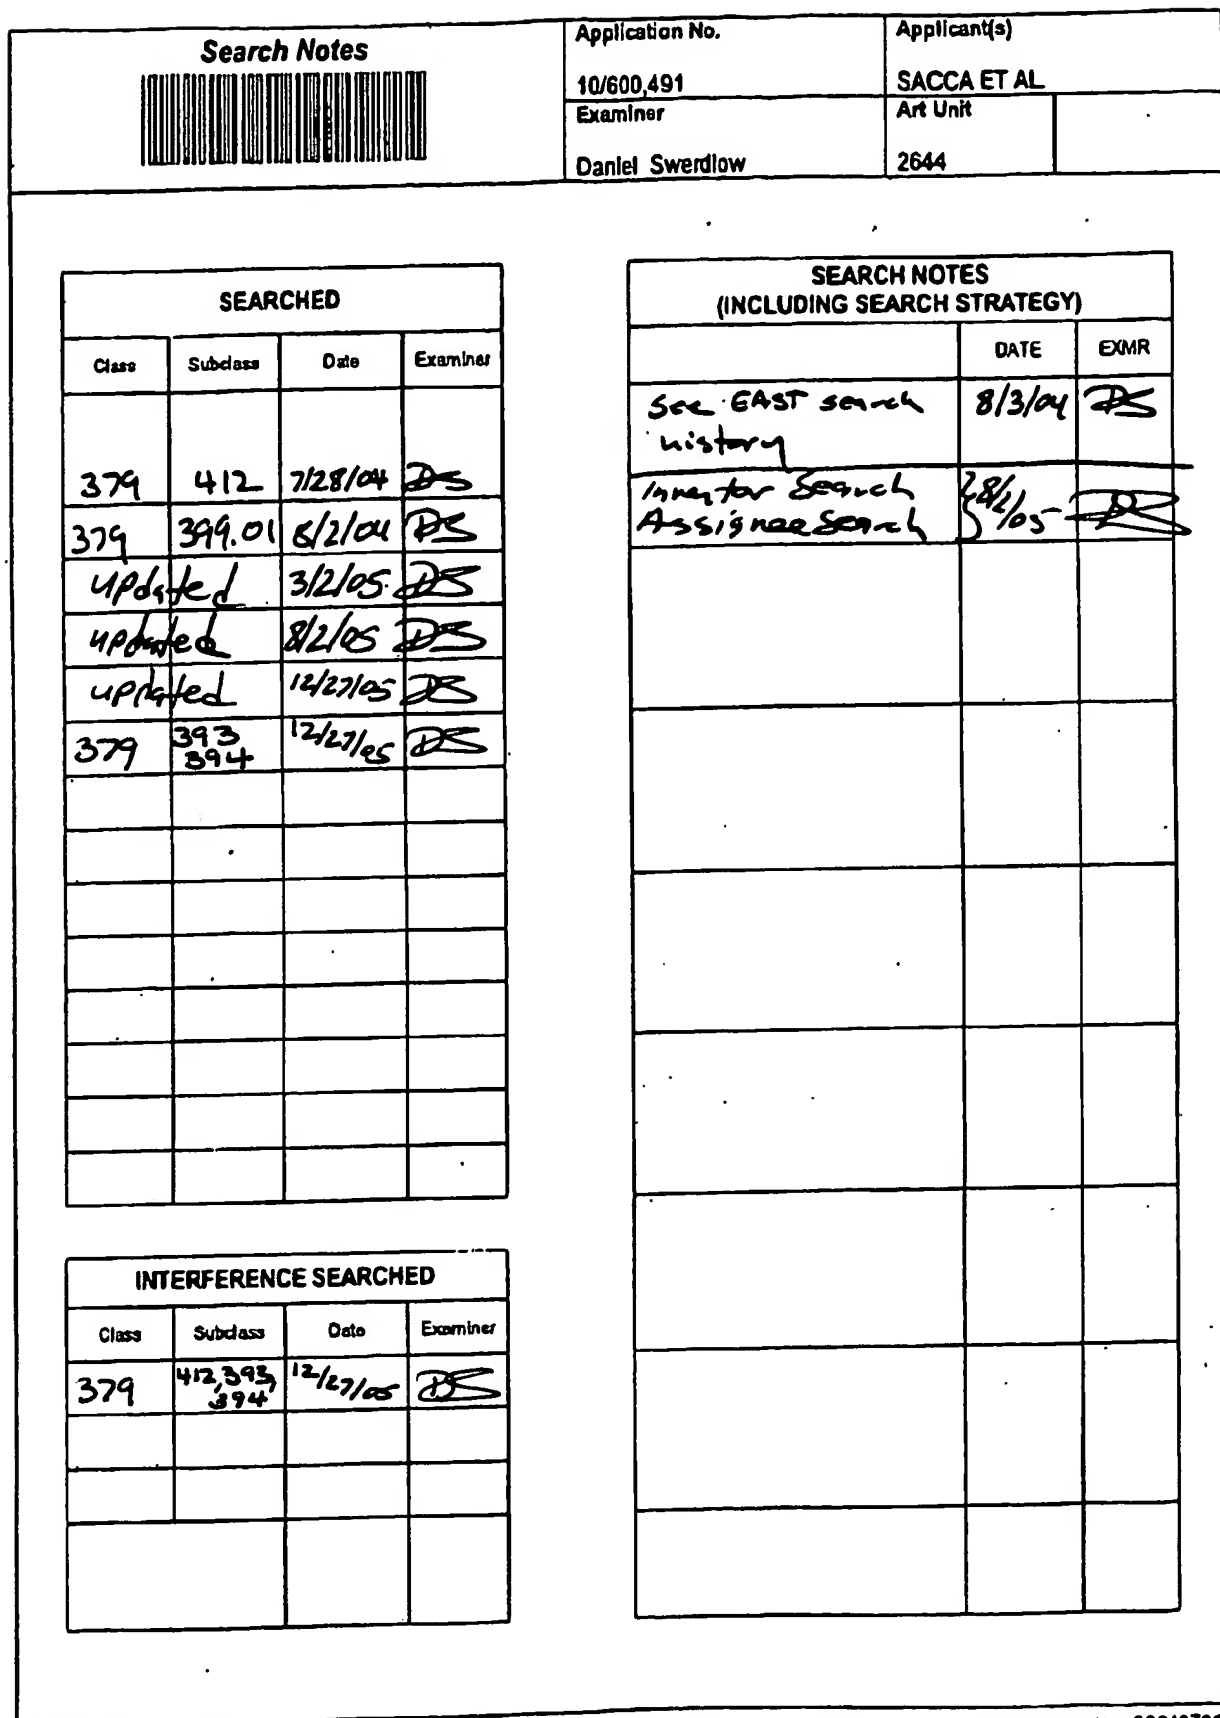 Search Notes
Application No.
10/600,491
Applicant(s)
SACCA ET AL
Examiner
Daniel Swerdlow
Art Unit
2644
SEARCHED
Class Subclass Date Examiner
379 412 7/28/04 DS
379 399.01 8/2/04 DS
updated 3/2/05 DS
updated 8/2/05 DS
updated 12/27/05 DS
379 393 394 12/27/05 DS
INTERFERENCE SEARCHED
Class Subclass Date Examiner
379 412,393, 394 12/27/05 DS
SEARCH NOTES
(INCLUDING SEARCH STRATEGY)
DATE EXMR
See EAST search 8/3/04 DS
history
Inventor Search 8/2/05 DS
Assignee Search